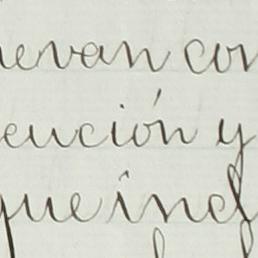 uevan con
eución y
que ind